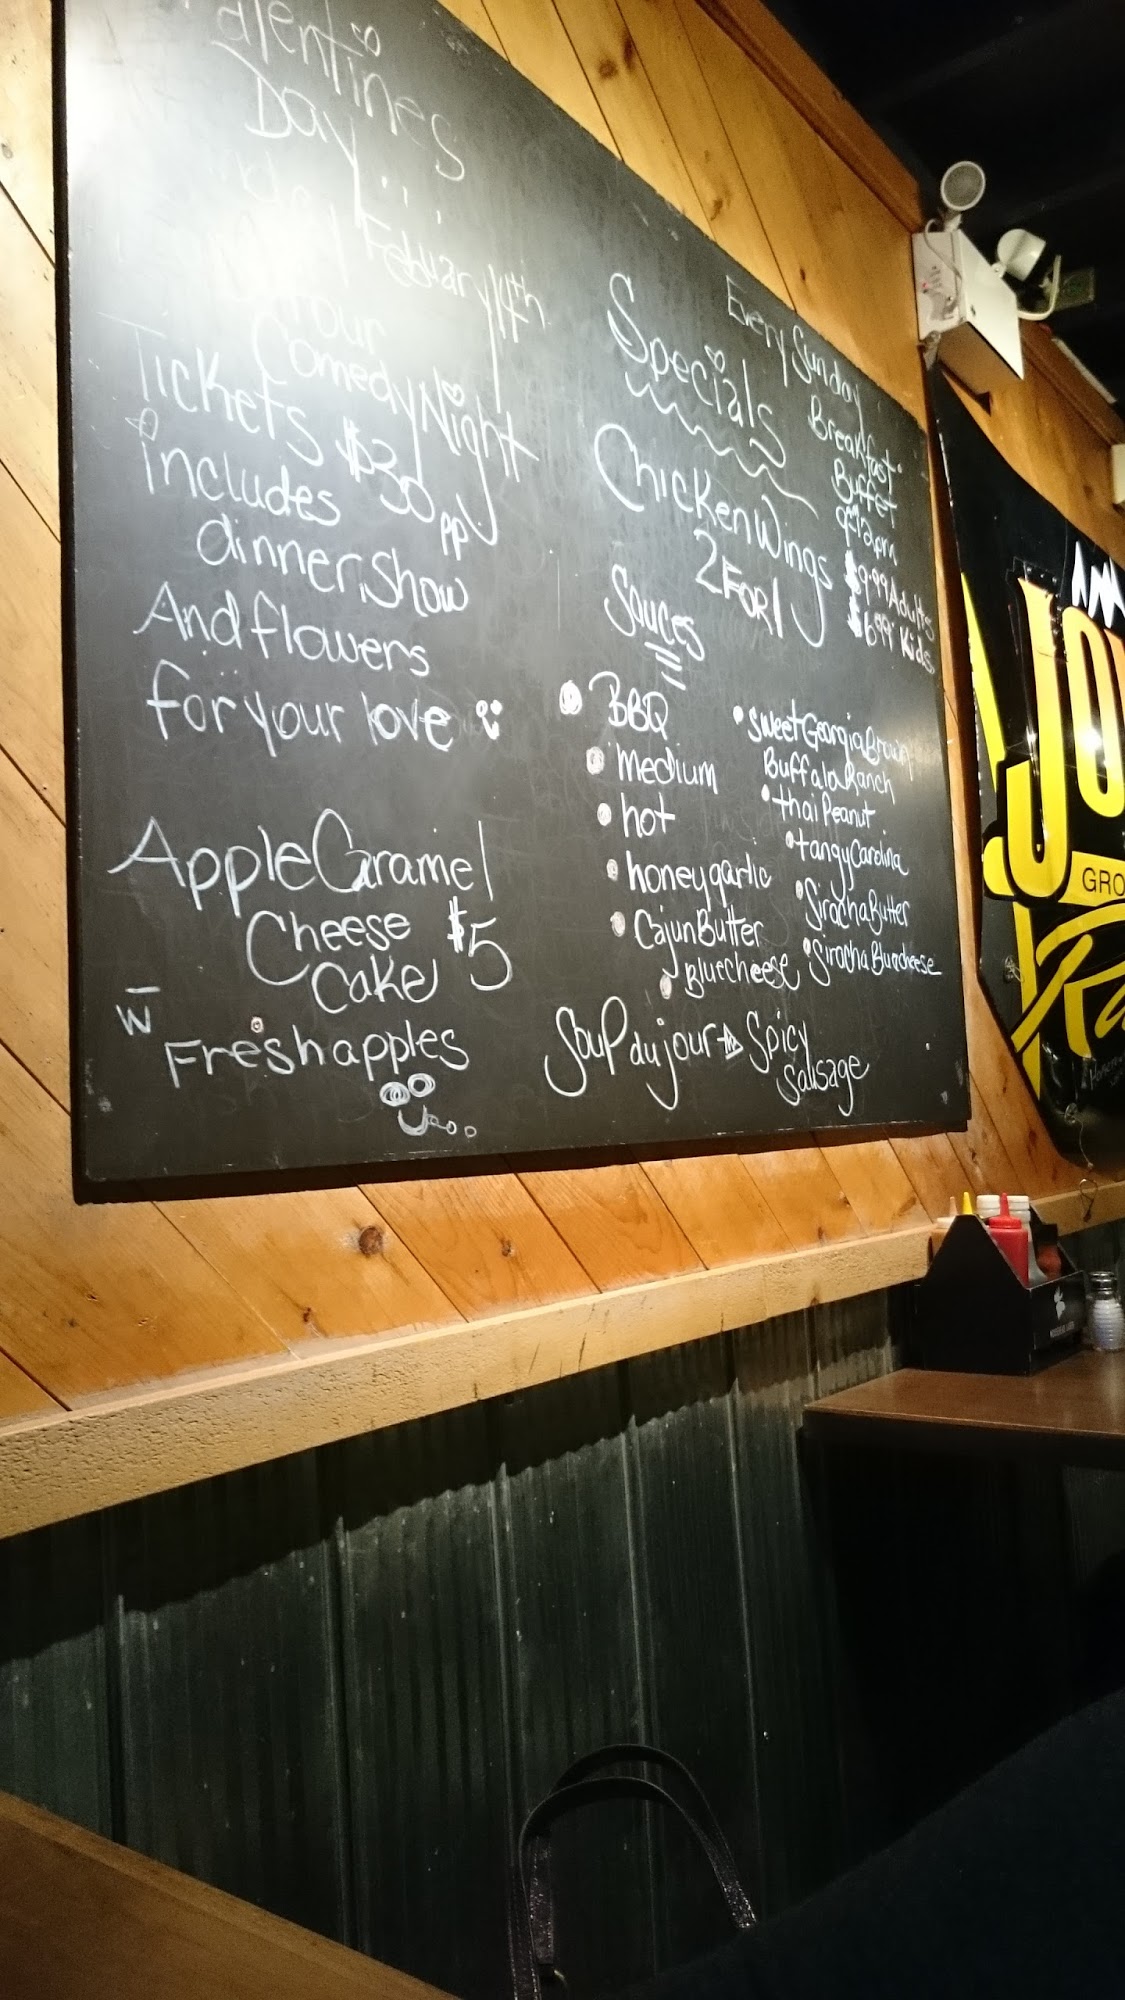 Valentines
Day
February 14th
our
Comedy Night
Tickets $30 pp
includes
dinner, show
And flowers
for your love
Apple Caramel
Cheese $5
Cake
W Fresh apples
Specials
Chicken Wings
2 FOR 1
Sauces
BBQ
medium
hot
honey garlic
Cajun Butter
Bluecheese
Sweet Georgia Brown
Buffalo Ranch
thai Peanut
tangy Carolina
Siracha Butter
Siracha Bluecheese
Soup du jour Spicy
Sausage
Every Sunday
Breakfast
Buffet
9-12pm
$9.99 Adults
$6.99 Kids
GRO